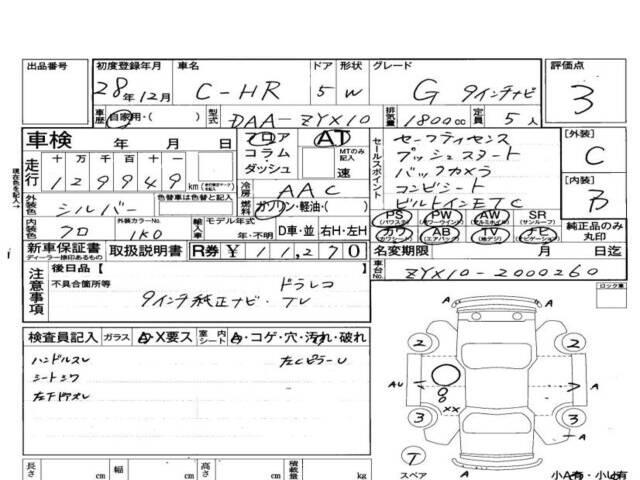 出品番号
初度登録年月
28年12月
車名
C-HR
ドア
5
形状
W
グレード
G 9インチナビ
評価点
3
車歴
自家用・( )
型式
DAA-ZYX10
排気量
1800cc
定員
5人
車検 年 月 日
フロア
コラム
ダッシュ
AT
MTのみ記入
速
セールスポイント
セーフティセンス
プッシュスタート
バックカメラ
コンビシート
ビルトインETC
[外装]
C
[内装]
B
現在色を記入→
走行
十 万 千 百 十 一
1 2 9 9 4 9
km
冷房
AAC
燃料
ガソリン・軽油・( )
外装色
シルバー
色替車は色替と記入
内装色
クロ
外装カラーNo.
1K0
輸入車
モデル年式
年・不明
D車・並
右H・左H
PS
(パワステ)
PW
(パワーウインド)
AW
(アルミホイル)
SR
(サンルーフ)
カワ
(カワシート)
AB
(エアバッグ)
TV
(地デジ)
ナビ
(ナビゲーション)
純正品のみ
丸印
新車保証書
ディーラー捺印あるもの
取扱説明書
R券
¥11,270
名変期限 月 日迄
車台No.
ZYX10-2000260
注意事項
後日品[ ]
不具合箇所等
ドラレコ
9インチ純正ナビ・TV
ロック車
検査員記入
ガラス
A・X要ス
室内シート
A・コゲ・穴・汚れ・破れ
ハンドルスレ
左CピラーU
シートシワ
左下ドアスレ
A
2
2
AU
A
××
3
3
A
T
スペア
A
長さ
cm
幅
cm
高さ
cm
積載量
kg
小A有・小U有